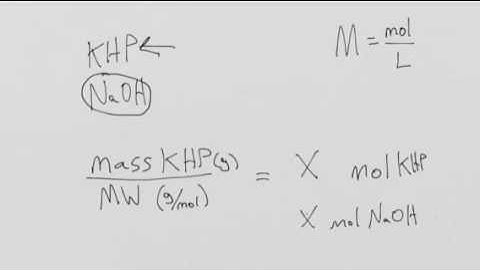 KHP←
NaOH
M = mol/L
mass KHP (g) / MW (g/mol) = X mol KHP
X mol NaOH